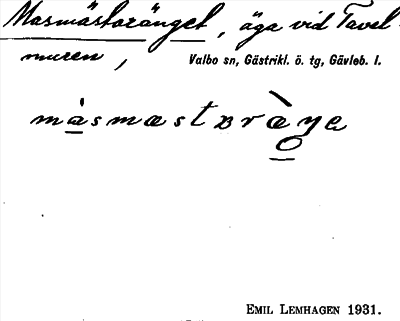 Masmästaränget, äga vid Tavel-
muren,
Valbo sn, Gästrikl. ö. tg, Gävleb. l.
EMIL LEMHAGEN 1931.